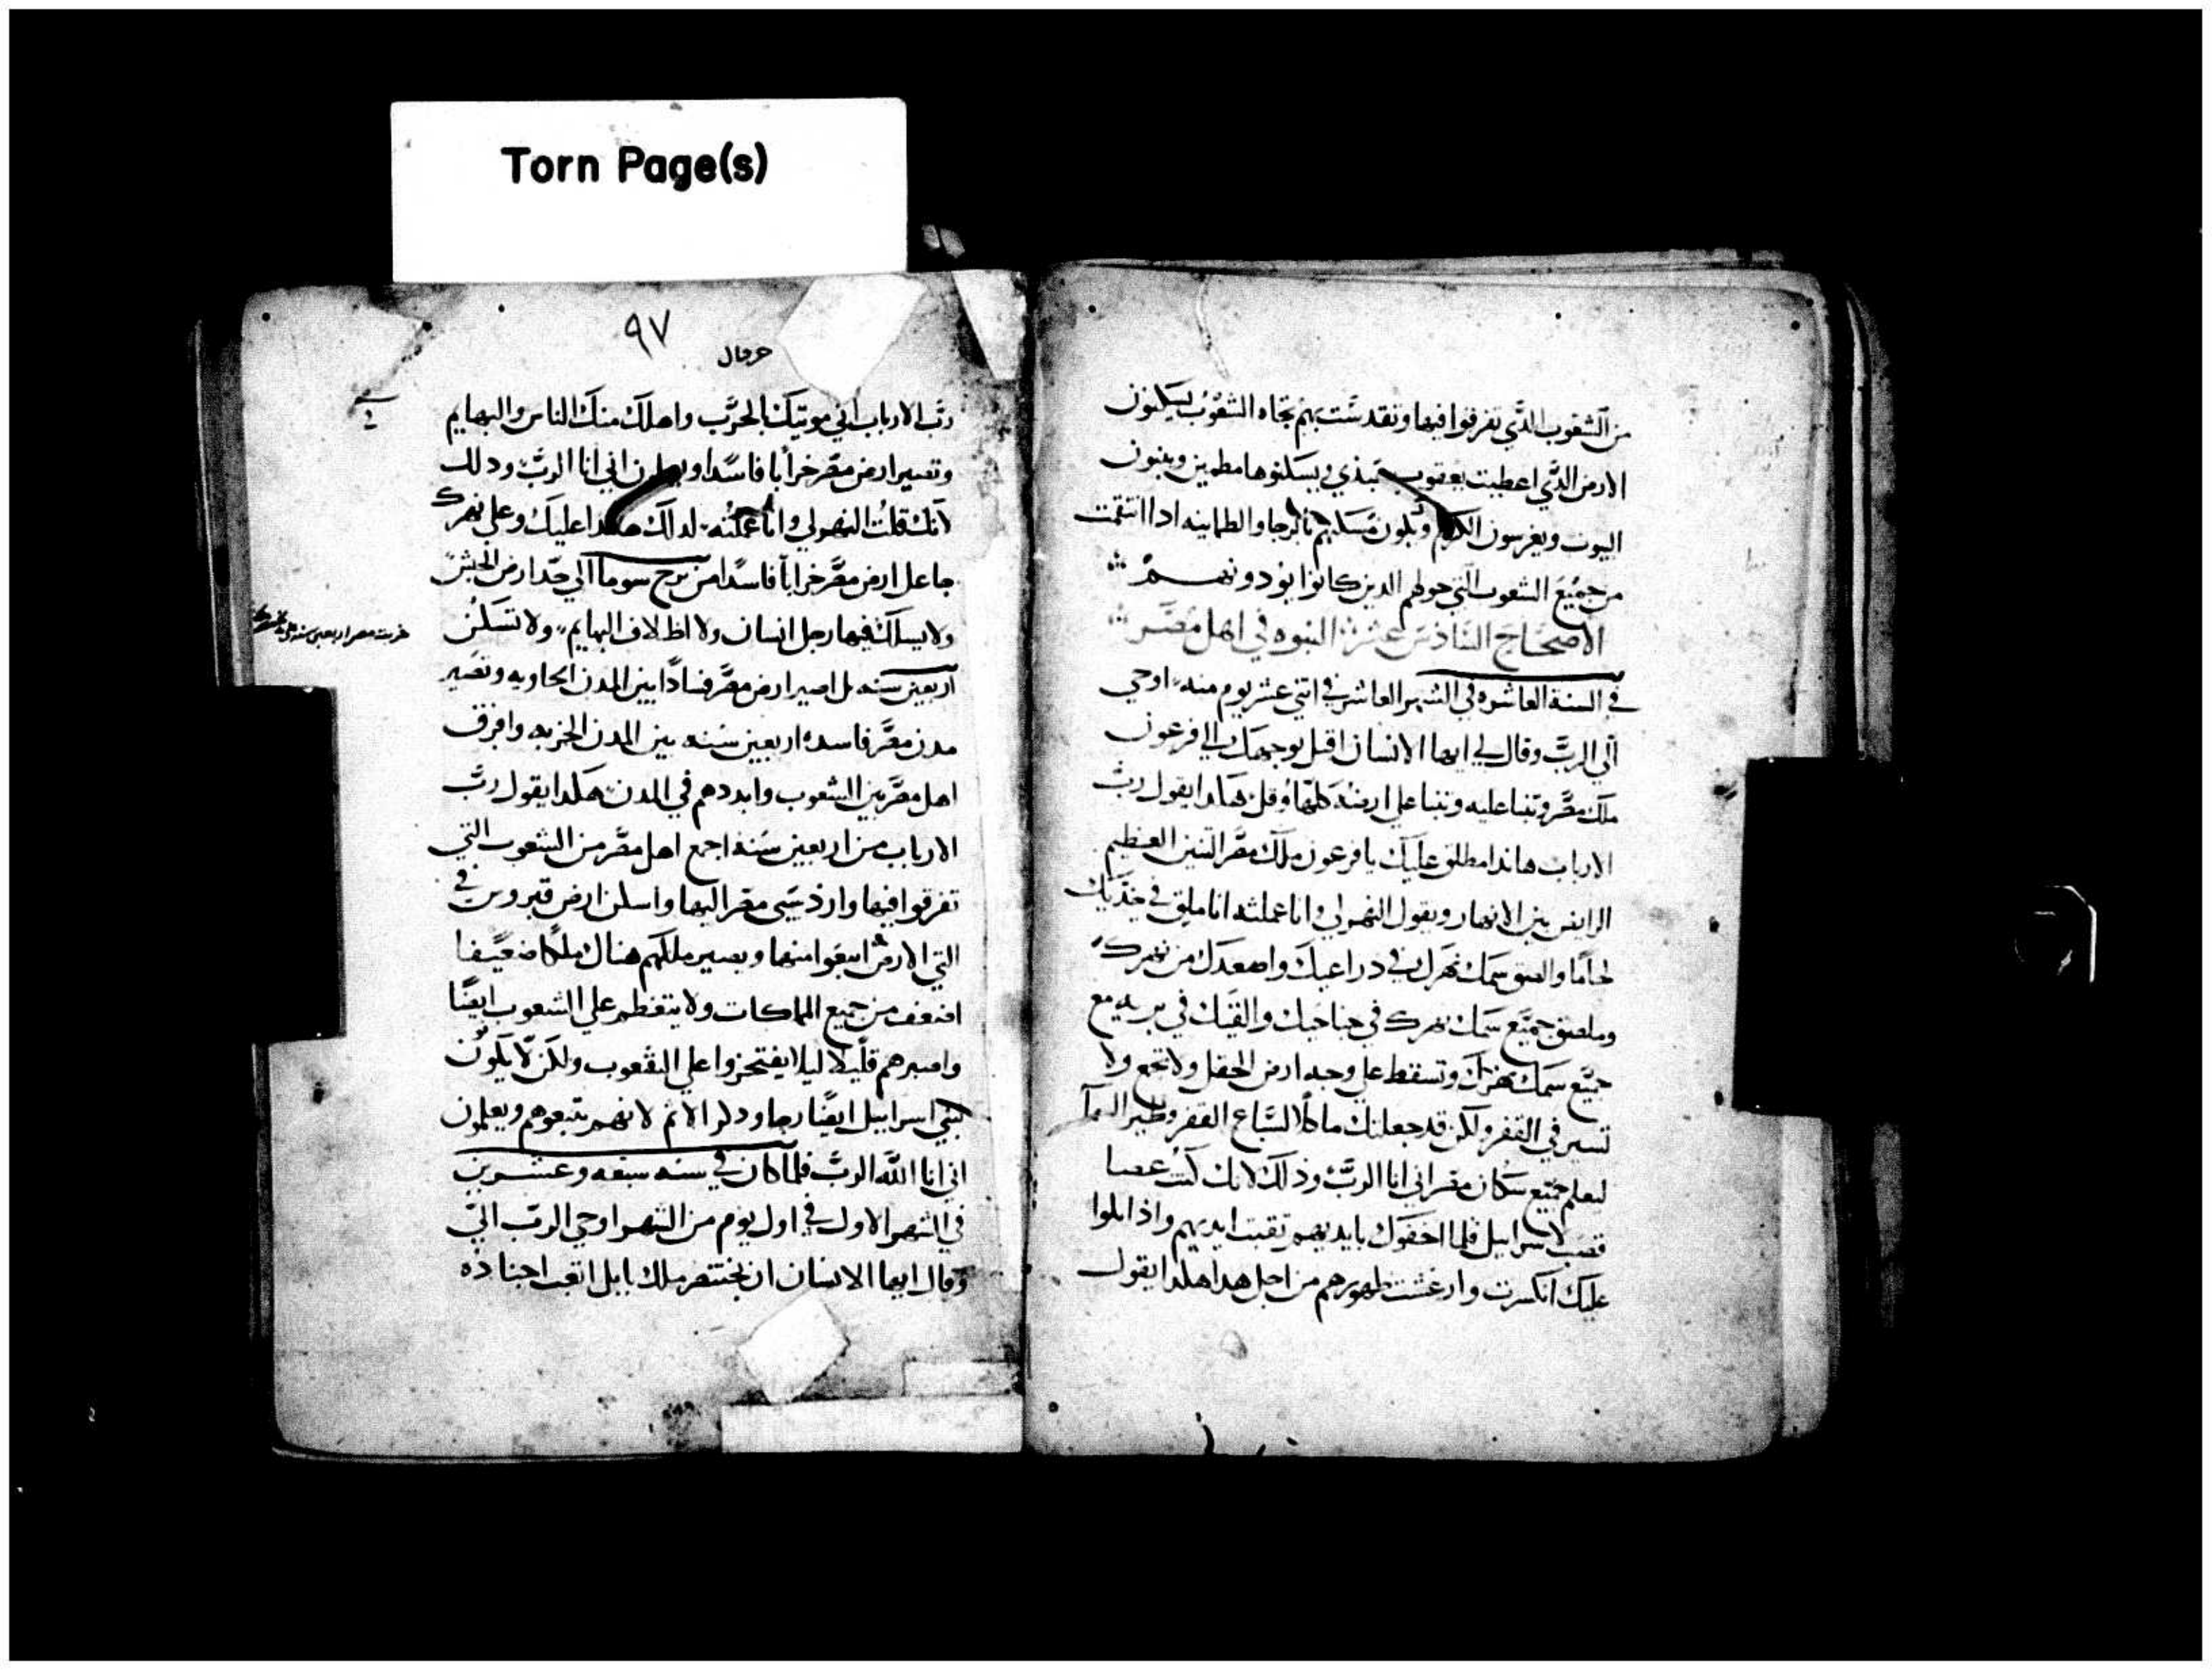 Torn Page(s)
من الشعوب الذي تفرقوا فيها وتقدست بهم تجاه الشعوب يسكنون
الارض الذي اعطيت يعقوب عبدي ويسكنوها مطمين ويبنون
البيوت ويغرسون الكرم ويكون مسكنهم بالرجا والطمانينه اذا انتقمت
من جميع الشعوب التي حولهم الدين كانوا يودونهم
الاصحاح السادس عشر النبوه في اهل مصر
في السنة العاشره في الشهر العاشر في اتني عشر يوم منه اوحي
الي الرب وقال لي ايها الانسان اقبل بوجهك الي فرعون
ملك مصر وتنبا عليه وتنبا علي ارضه كلها وقل هكدا يقول رب
الارباب هاندا مطلق عليك يا فرعون ملك مصر التنين العظيم
الرابض بين الانهار ويقول النهر لي وانا عملته انا ملق في خديك
لجاما والصق سمك نهرك في دراعيك واصعدك من نهرك
وملصق جميع سمك نهرك في جناحيك والقيك في بريه مع
جميع سمك نهرك وتسقط علي وجه ارض الحقل ولا تجمع ولا
تسير في القفر ولكن قد جعلتك ماكلا لسباع القفر وطير السما
ليعلم جميع سكان مصر اني انا الرب وذلك لانك كنت عصا
قصب لاسرايل فلما اخذوك بايديهم تقبت ايديهم واذا اتكلوا
عليك انكسرت وارعشت ظهورهم من اجل هدا هكدا يقول
٩٧
حزقال
رب الارباب اني موتيك بالحرب واهلك منك الناس والبهايم
وتصير ارض مصر خرابا فاسدا ويعلمون اني انا الرب ودلك
لانك قلت النهر لي وانا عملته لدلك هاندا عليك وعلي نهرك
جاعل ارض مصر خرابا فاسدا من برج سوما الي حد ارض الحبش
ولا يسلك فيها رجل انسان ولا اظلاف البهايم ولا تسكن
اربعين سنه بل اصير ارض مصر فسادا بين المدن الخاويه وتصير
مدن مصر فاسده اربعين سنه بين المدن الخربه وافرق
اهل مصر بين الشعوب وابددهم في المدن هكدا يقول رب
الارباب من اربعين سنه اجمع اهل مصر من الشعوب التي
تفرقوا فيها وارد سبي مصر اليها واسكن ارض قبروس في
التي الارض ابيعوا منها ويصير ملكهم هناك ملكا ضعيفا
اضعف من جميع الملكات ولا يتعظم علي الشعوب ايضا
واصيرهم قليلا ليلا يفتخروا علي الشعوب ولكن لا يكون
لبني اسراييل ايضا رجا ودكر الاثم لانهم يتبعوهم ويعلمون
اني انا الله الرب فلما كان في سنه سبعه وعشرين
في الشهر الاول في اول يوم من الشهر اوحي الرب الي
وقال ايها الانسان ان بختنصر ملك بابل اتعب اجناده
خربت مصر اربعين سنه